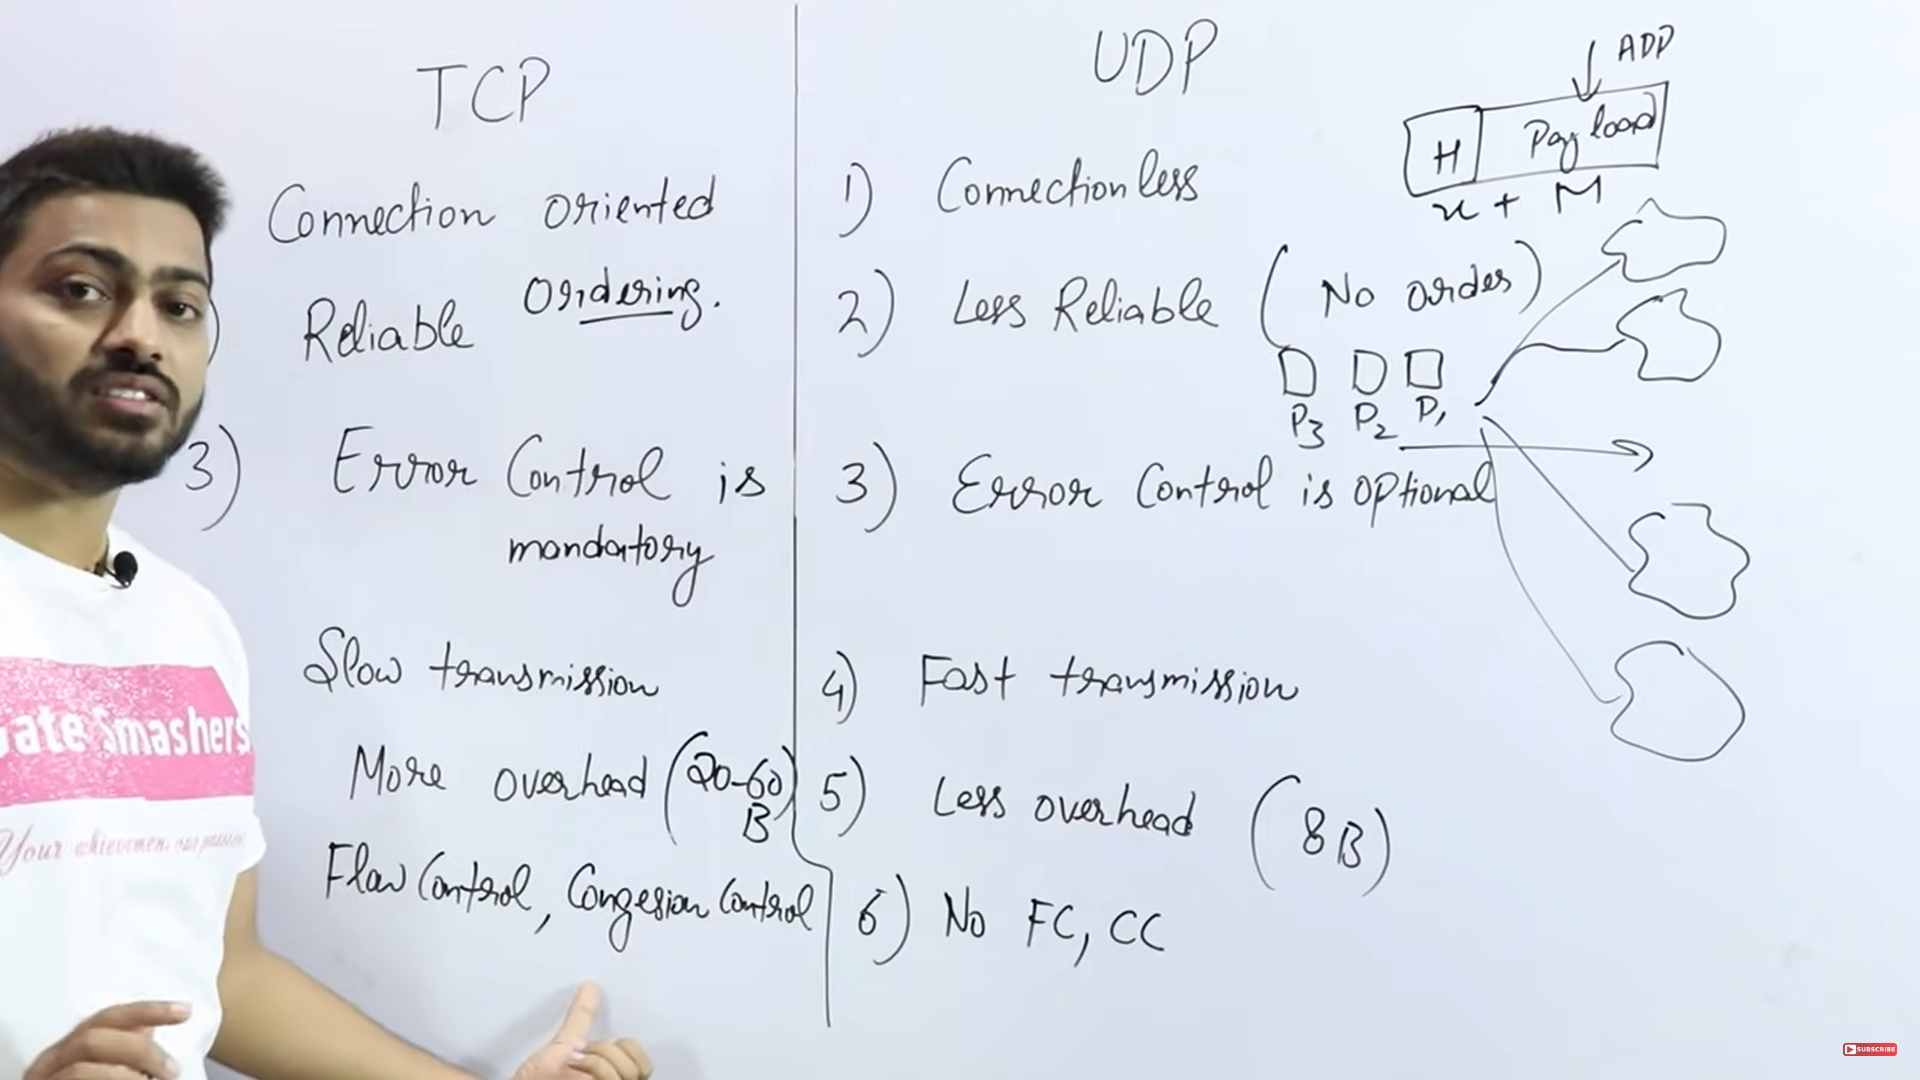 TCP
Connection oriented
Reliable Ordering.
3) Error Control is
mandatory
Slow transmission
More overhead (20-60)
B
Flow Control, Congesion Control
UDP
1) Connectionless
2) Less Reliable (No order)
P3 P2 P1
3) Error Control is optional
4) Fast transmission
5) Less overhead (8B)
6) No FC, CC
H Payload
x + M
ate Smashers
Your achievemen, our passion
SUBSCRIBE